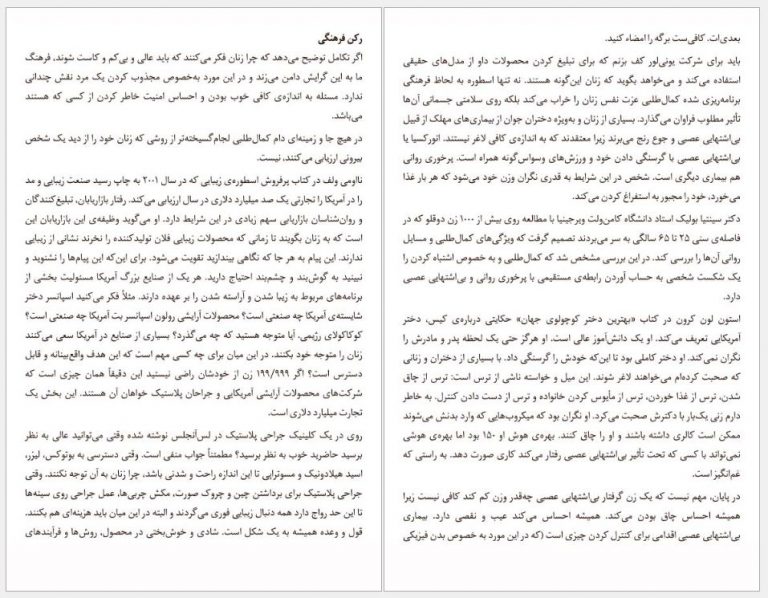 بعدی‌ات. کافی‌ست برگه را امضاء کنید.
باید برای شرکت یونی‌لور کف بزنم که برای تبلیغ کردن محصولات داو از مدل‌های حقیقی
استفاده می‌کند و می‌خواهد بگوید که زنان این‌گونه هستند. نه تنها اسطوره به لحاظ فرهنگی
برنامه‌ریزی شده کمال‌طلبی عزت نفس زنان را خراب می‌کند بلکه روی سلامتی جسمانی آن‌ها
تأثیر مطلوب فراوان می‌گذارد. بسیاری از زنان و به‌ویژه دختران جوان از بیماری‌های مهلک از قبیل
بی‌اشتهایی عصبی و جوع رنج می‌برند زیرا معتقدند که به اندازه‌ی کافی لاغر نیستند. انورکسیا یا
بی‌اشتهایی عصبی با گرسنگی دادن خود و ورزش‌های وسواس‌گونه همراه است. پرخوری روانی
هم بیماری دیگری است. شخص در این شرایط به قدری نگران وزن خود می‌شود که هر بار غذا
می‌خورد، خود را مجبور به استفراغ کردن می‌کند.
دکتر سینتیا بولیک استاد دانشگاه کامن‌ولث ویرجینیا با مطالعه روی بیش از ۱۰۰۰ زن دوقلو که در
فاصله‌ی سنی ۲۵ تا ۶۵ سالگی به سر می‌بردند تصمیم گرفت که ویژگی‌های کمال‌طلبی و مسایل
روانی آن‌ها را بررسی کند. در این بررسی مشخص شد که کمال‌طلبی و به خصوص اشتباه کردن را
یک شکست شخصی به حساب آوردن رابطه‌ی مستقیمی با پرخوری روانی و بی‌اشتهایی عصبی
دارد.
استون لون کرون در کتاب «بهترین دختر کوچولوی جهان» حکایتی درباره‌ی کیس، دختر
آمریکایی تعریف می‌کند. او یک دانش‌آموز عالی است. او هرگز حتی یک لحظه پدر و مادرش را
نگران نمی‌کند. او دختر کاملی بود تا این‌که خودش را گرسنگی داد. با بسیاری از دختران و زنانی
که صحبت کرده‌ام می‌خواهند لاغر شوند. این میل و خواسته ناشی از ترس است: ترس از چاق
شدن، ترس از غذا خوردن، ترس از مأیوس کردن خانواده و ترس از دست دادن کنترل. به خاطر
دارم زنی یک‌بار با دکترش صحبت می‌کرد. او نگران بود که میکروب‌هایی که وارد بدنش می‌شوند
ممکن است کالری داشته باشند و او را چاق کنند. بهره‌ی هوش او ۱۵۰ بود اما بهره‌ی هوشی
نمی‌تواند با کسی که تحت تأثیر بی‌اشتهایی عصبی رفتار می‌کند کاری صورت دهد. به راستی که
غم‌انگیز است.
در پایان، مهم نیست که یک زن گرفتار بی‌اشتهایی عصبی چه‌قدر وزن کم کند کافی نیست زیرا
همیشه احساس چاق بودن می‌کند. همیشه احساس می‌کند عیب و نقصی دارد. بیماری
بی‌اشتهایی عصبی اقدامی برای کنترل کردن چیزی است (که در این مورد به خصوص بدن فیزیکی
رکن فرهنگی
اگر تکامل توضیح می‌دهد که چرا زنان فکر می‌کنند که باید عالی و بی‌کم و کاست شوند، فرهنگ
ما به این گرایش دامن می‌زند و در این مورد به‌خصوص مجذوب کردن یک مرد نقش چندانی
ندارد. مسئله به اندازه‌ی کافی خوب بودن و احساس امنیت خاطر کردن از کسی که هستند
می‌باشد.
در هیچ جا و زمینه‌ای دام کمال‌طلبی لجام‌گسیخته‌تر از روشی که زنان خود را از دید یک شخص
بیرونی ارزیابی می‌کنند، نیست.
نااومی ولف در کتاب پرفروش اسطوره‌ی زیبایی که در سال ۲۰۰۱ به چاپ رسید صنعت زیبایی و مد
را در آمریکا را تجارتی یک صد میلیارد دلاری در سال ارزیابی می‌کند. رفتار بازاریابان، تبلیغ‌کنندگان
و روان‌شناسان بازاریابی سهم زیادی در این شرایط دارد. او می‌گوید وظیفه‌ی این بازاریابان این
است که به زنان بگویند تا زمانی که محصولات زیبایی فلان تولیدکننده را نخرند نشانی از زیبایی
ندارند. این پیام به هر جا که نگاهی بیندازید تقویت می‌شود. برای این‌که این پیام‌ها را نشنوید و
نبینید به گوش‌بند و چشم‌بند احتیاج دارید. هر یک از صنایع بزرگ آمریکا مسئولیت بخشی از
برنامه‌های مربوط به زیبا شدن و آراسته شدن را بر عهده دارند. مثلاً فکر می‌کنید اسپانسر دختر
شایسته‌ی آمریکا چه صنعتی است؟ محصولات آرایشی رولون اسپانسر بت آمریکا چه صنعتی است؟
کوکاکولای رژیمی، آیا متوجه هستید که چه می‌گذرد؟ بسیاری از صنایع در آمریکا سعی می‌کنند
زنان را متوجه خود بکنند. در این میان برای چه کسی مهم است که این هدف واقع‌بینانه و قابل
دسترس است؟ اگر ۱۹۹/۹۹۹ زن از خودشان راضی نیستید این دقیقاً همان چیزی است که
شرکت‌های محصولات آرایشی آمریکایی و جراحان پلاستیک خواهان آن هستند. این بخش یک
تجارت میلیارد دلاری است.
روی در یک کلینیک جراحی پلاستیک در لس‌آنجلس نوشته شده وقتی می‌توانید عالی به نظر
برسید حاضرید خوب به نظر برسید؟ مطمئناً جواب منفی است. وقتی دسترسی به بوتوکس، لیزر،
اسید هیلادونیک و مسوتراپی تا این اندازه راحت و شدنی باشد، چرا زنان به آن توجه نکنند. وقتی
جراحی پلاستیک برای برداشتن چین و چروک صورت، مکش چربی‌ها، عمل جراحی روی سینه‌ها
تا این حد رواج دارد همه دنبال زیبایی فوری می‌گردند و البته در این میان باید هزینه‌ای هم بکنند.
قول و وعده همیشه به یک شکل است. شادی و خوش‌بختی در محصول، روش‌ها و فرآیندهای